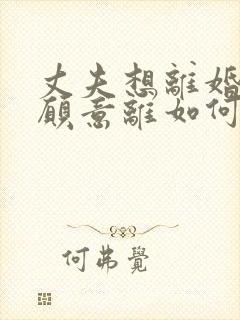 丈夫想離婚
願意離如何
何弗覺